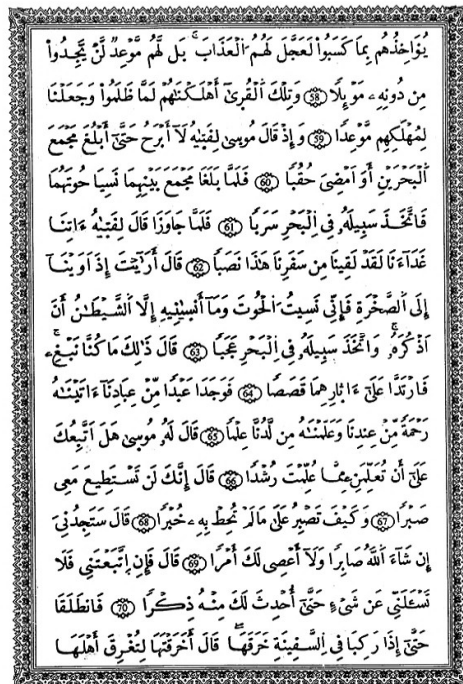 يُؤَاخِذُهُم بِمَا كَسَبُواْ لَعَجَّلَ لَهُمُ الْعَذَابَ بَل لَّهُم مَّوْعِدٌ لَّنْ يَّجِدُواْ
مِن دُونِهِۦ مَوْئِلًا ۝58 وَتِلْكَ الْقُرَىٰ أَهْلَكْنَٰهُمْ لَمَّا ظَلَمُواْ وَجَعَلْنَا
لِمُهْلَكِهِم مَّوْعِدًا ۝59 وَإِذْ قَالَ مُوسَىٰ لِفَتَىٰهُ لَآ أَبْرَحُ حَتَّىٰٓ أَبْلُغَ مَجْمَعَ
الْبَحْرَيْنِ أَوْ أَمْضِيَ حُقُبًا ۝60 فَلَمَّا بَلَغَا مَجْمَعَ بَيْنِهِمَا نَسِيَا حُوتَهُمَا
فَاتَّخَذَ سَبِيلَهُۥ فِي الْبَحْرِ سَرَبًا ۝61 فَلَمَّا جَاوَزَا قَالَ لِفَتَىٰهُ ءَاتِنَا
غَدَآءَنَا لَقَدْ لَقِينَا مِن سَفَرِنَا هَٰذَا نَصَبًا ۝62 قَالَ أَرَٰٓيْتَ إِذْ أَوَيْنَآ
إِلَى الصَّخْرَةِ فَإِنِّي نَسِيتُ الْحُوتَ وَمَآ أَنسَىٰنِيهِ إِلَّا الشَّيْطَٰنُ أَنْ
أَذْكُرَهُۥ وَاتَّخَذَ سَبِيلَهُۥ فِي الْبَحْرِ عَجَبًا ۝63 قَالَ ذَٰلِكَ مَا كُنَّا نَبْغِۦ
فَارْتَدَّا عَلَىٰٓ ءَاثَارِهِمَا قَصَصًا ۝64 فَوَجَدَا عَبْدًا مِّنْ عِبَادِنَآ ءَاتَيْنَٰهُ
رَحْمَةً مِّنْ عِندِنَا وَعَلَّمْنَٰهُ مِن لَّدُنَّا عِلْمًا ۝65 قَالَ لَهُۥ مُوسَىٰ هَلْ أَتَّبِعُكَ
عَلَىٰٓ أَن تُعَلِّمَنِۦ مِمَّا عُلِّمْتَ رُشْدًا ۝66 قَالَ إِنَّكَ لَن تَسْتَطِيعَ مَعِي
صَبْرًا ۝67 وَكَيْفَ تَصْبِرُ عَلَىٰ مَا لَمْ تُحِطْ بِهِۦ خُبْرًا ۝68 قَالَ سَتَجِدُنِيَ
إِن شَآءَ اللَّهُ صَابِرًا وَلَآ أَعْصِي لَكَ أَمْرًا ۝69 قَالَ فَإِنِ اتَّبَعْتَنِي فَلَا
تَسْـَٔلَنِّي عَن شَيْءٍ حَتَّىٰٓ أُحْدِثَ لَكَ مِنْهُ ذِكْرًا ۝70 فَانطَلَقَا
حَتَّىٰٓ إِذَا رَكِبَا فِي السَّفِينَةِ خَرَقَهَا قَالَ أَخَرَقْتَهَا لِتُغْرِقَ أَهْلَهَا